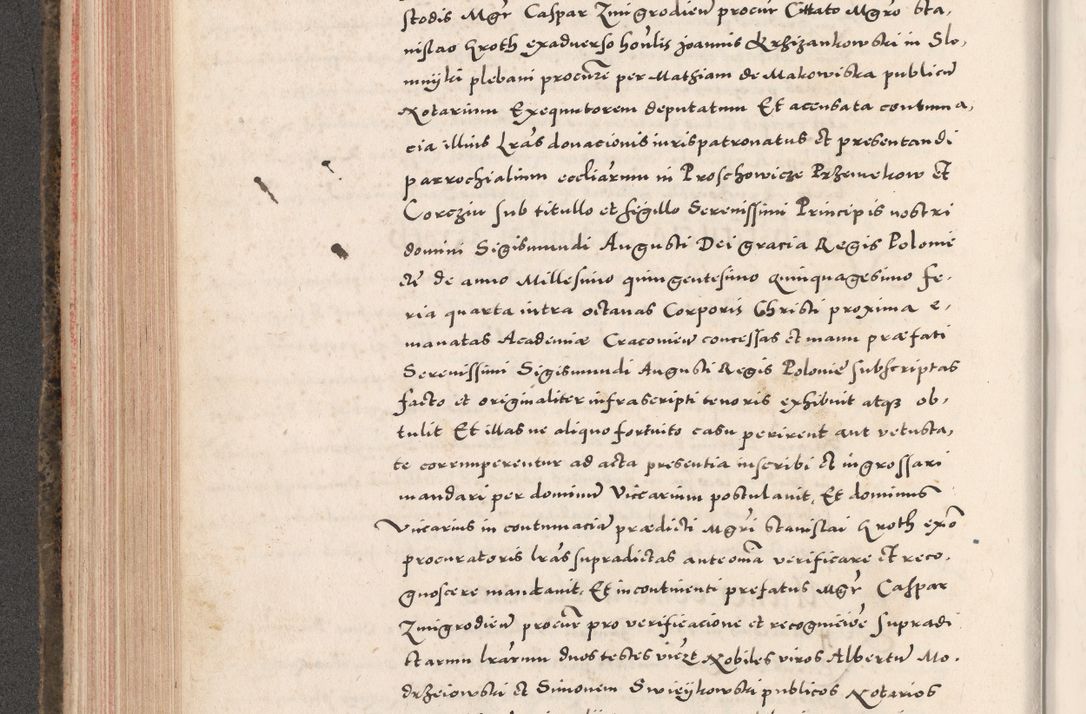 stodis Mgr Caspar Zmigrodien procur Citato Mgro Sta,
nislao Groth exaduerso honlis joannis Krzizankowski in Slo,
mnijki plebani procure per Mathiam de Makowiska publicu
Notarium Exequutorem deputatum Et accusata contuma,
cia illius lras donacionis iurispatronatus et presentandi
parrochialium eccliarum in Proschowicze Przemekow Et
Corczin sub titullo et sigillo Serenissimi Principis nostri
domini Sigismundi Augusti Dei gracia Regis Polonie
etc de anno Millesimo quingentesimo quinquagesimo fe,
ria quarta intra octauas Corporis Christi proxima e,
manatas Academiæ Cracouien concessas et manu præfati
Serenissimi Sigismundi Augusti Regis Polonie subscriptas
facto et originaliter infrascripti tenoris exhibuit atque ob,
tulit Et illas ne aliquo fortuito casu perirent aut vetusta,
te corrumperentur ad acta presentia inscribi et ingrossari
mandari per dominu Vicarium postulauit, Et dominus
Vicarius in contumacia prædicti Mgri Stanislai Groth exo
procuratoris lras supradictas ante oma verificare et reco,
gnoscere mandauit, Et incontinenti prefatus Mgr Caspar
Zmigrodien procur pro verificacione et recognicioe supradi
ctarum lrarum duos testes vizt Nobiles viros Albertu Mo,
drzeiowski et Simonem Swieijkowski publicos Notarios